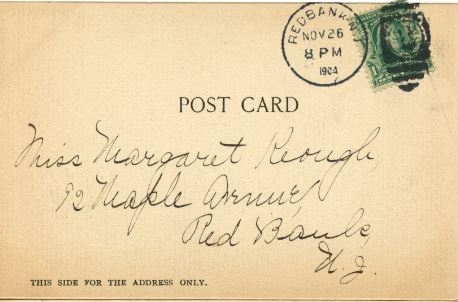 RED BANK N.J.
NOV 26
8 PM
1904
POST CARD
Miss Margaret Keough,
92 Maple Avenue,
Red Bank,
N.J.
THIS SIDE FOR THE ADDRESS ONLY.